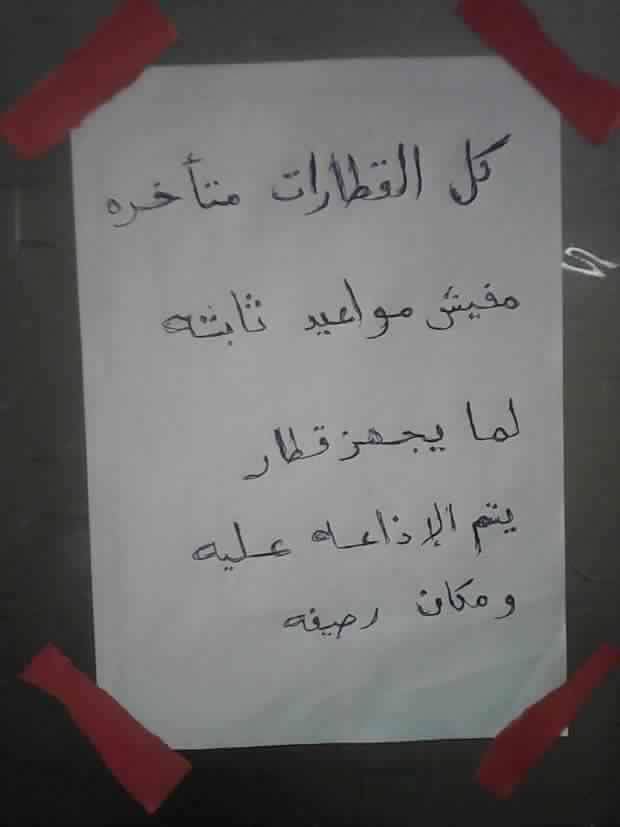 كل القطارات متأخره
مفيش مواعيد ثابته
لما يجهز قطار
يتم الإذاعه عليه
و مكان رصيفه